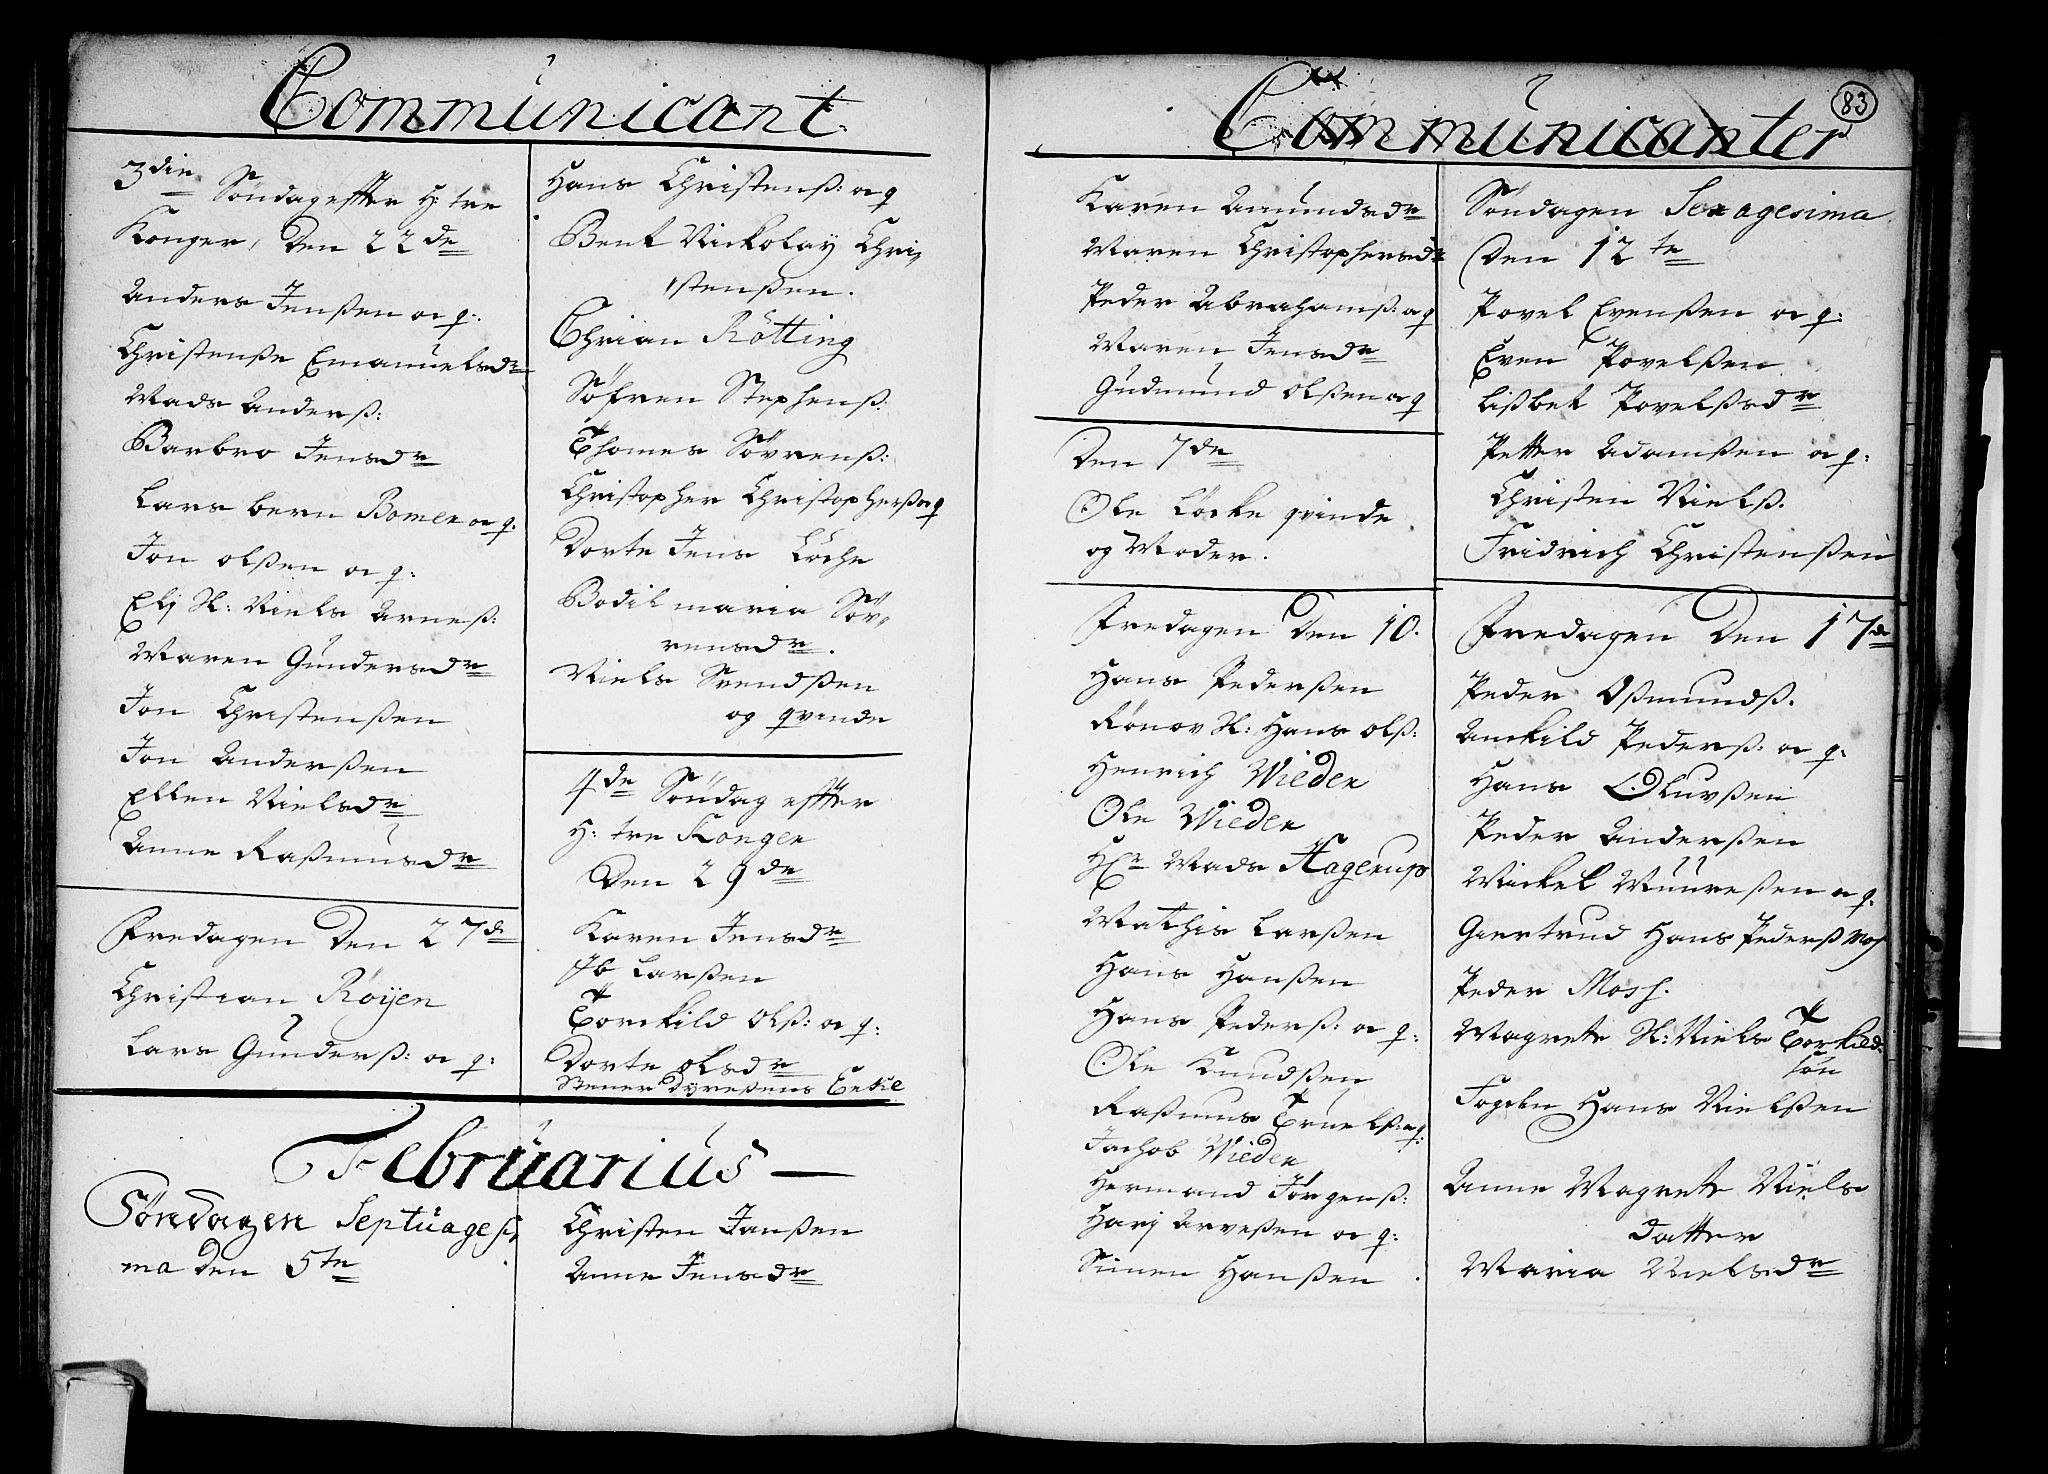 Communicant.
3die Søndag efter H: tre
Konger, Den 22de
Anders Jenßen o q:
Christenße Emanuelsdr
Mads Anderß:
Barbro Jensdr
Lars bern Bomen o q:
Jon olßen o q:
Elj Sl: Niels Arneß:
Maren Gundersdr
Jon Christenßen
Jon Anderßen
Ellen Nielsdr
Anne Raßmusdr
Fredagen Den 27de
Christian Röÿen
Lars Gunderß: o q:
Hans Christenß: o q
Bent Nickolaÿ Chri,,
stenßen.
Chrian Rötting
Søfren Stephenß:
Thomes Søvrenß:
Christopher Christopherß o q
Dorte Jens Löche
Bodil maria Søv,,
rensdr.
Niels Svendßen
og qvinde
4de Søndag effter
H: tre Konger
Den 29de
Karen Jensdr
Jb Larßen
Torckild Olß: o q:
Dorte olsdr
Stener Dyreßens Enke
Februarius
Søndagen Septuagesi,,
ma Den 5te
Christen Janßen
Anne Jensdr
83
Communicanter
Karen Amundsdr
Maren Christophersdr
Peder Abrahamß: o q
Maren Jensdr
Gudmund olßen o q
Den 7de
Ole Löcke qvinde
og Moder.
Fredagen Den 10.
Hans Pederßen
Rønov Sl: Hans olß:
Henrich Wieden
Ole Wieden
Hr Mads Hagerup
Mathis Larßen
Hans Hanßen
Hans Pederß: o q:
Ole Knudßen
Raßmus Truelß: o q:
Jachob Wieden
Hermand Jørgenß:
Harj Arveßen o q:
Simen Hanßen
Søndagen Sexagesima
Den 12te
Povel Evenßen o q:
Even Povelßen
Lißbet Povelßdr
Petter Adamßen o q:
Christen Nielß.
Fridrich Christenßen
Fredagen Den 17de
Peder Oßmundß.
Anckild Pederß: o q:
Hans Oluvßen
Peder Anderßen
Mickel Muureßen o q:
Giertrud Hans Pederß Mos
Peder Mosh.
Magrete Sl: Niels Torkild-
søn
Fogden Hans Nielßen
Anne Magrete Niels
Datter
Maria Nielsdr